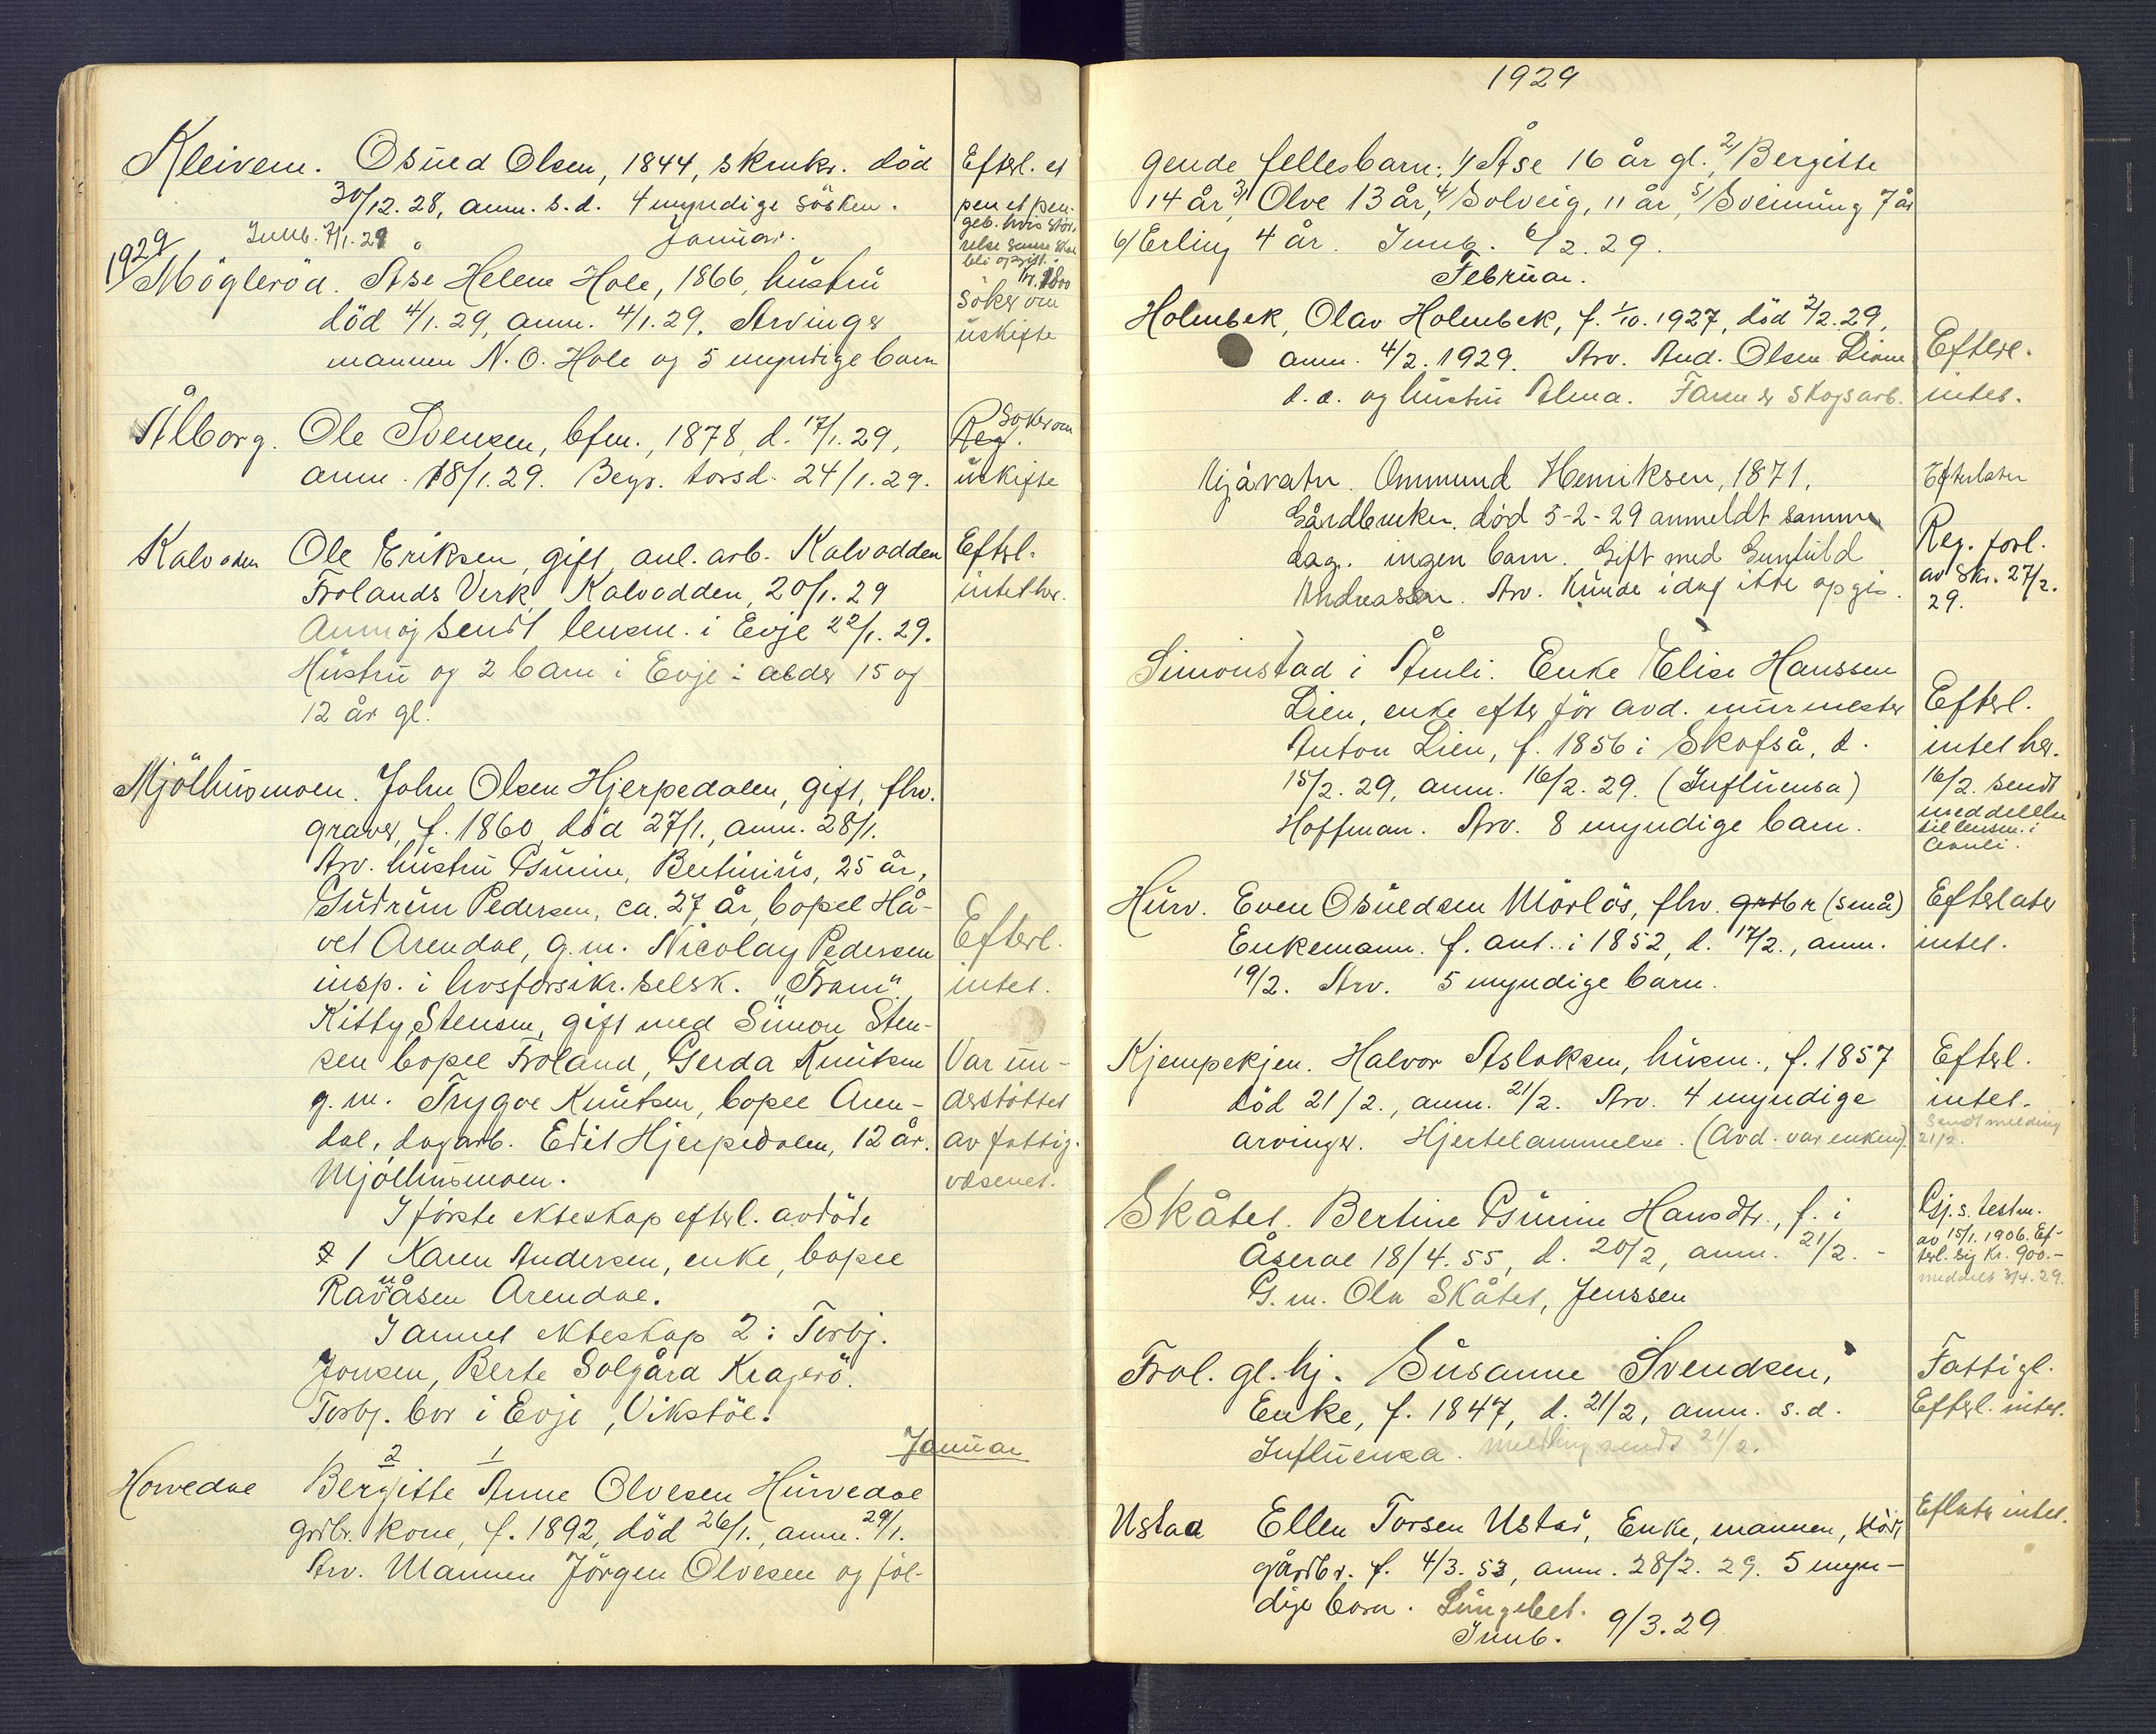 Kleivene. Osuld Olsen, 1844, skrukr. död
30/12.28, anm. s.d. 4 myndige sösken.
Innb. 7/1.29 Januar.
Efterl. et
pen. geb. hvis stör-
relse senere skal
bli opgitt.
kr. 1800
1929
Mögleröd. Åse Helene Hole, 1866, hustru
död 4/1.29, anm. 4/1.29. Arvinger
mannen N.O. Hole og 5 myndige barn
Söker om
uskifte
Ålborg. Ole Svensen, bfm., 1878, d. 17/1.29,
anm. 18/1.29. Begr. torsd. 24/1.29.
Reg. Söker om
uskifte
Kalvodden Ole Eriksen, gift, anl. arb. Kalvodden
Frolands Verk, Kalvodden, 20/1.29
Anm og sendt lensm. i Evje 22/1.29.
Hustru og 2 barn i Evje: alder 15 og
12 år gl.
Efterl.
intet her.
Mjölhusmoen. John Olsen Hjerpedalen, gift, fhv.
graver, f. 1860, död 27/1., anm. 28/1.
Arv. hustru Gurine, Bertinius, 25 år,
Gudrun Pedersen, ca. 27 år, bopel Hå-
vet Arendal, g.m. Nicolay Pedersen
insp. i livsforsikr. selsk. "Fram"
Kitty Stensen, gift med Simon Sten-
sen bopel Froland, Gerda Knutsen
g.m. Trygve Knutsen, bopel Aren-
dal, dagarb. Edit Hjerpedalen, 12 år.
Mjölhusmoen.
Efterl.
intet.
Var un-
derstöttet
av fattig-
vesenet.
I förste ekteskap efterl. avdöde
1 Karen Andersen, enke, bopel
Ravnåsen Arendal.
I annet ekteskap 2: Torbj.
Jonsen, Berte Solgård Kragerö.
Torbj. bor i Evje, Vikstöl.
Januar
2 1
Hovvedal Bergitte Anne Olvesen Hurvedal
grdbr. kone, f. 1892, död 26/1., anm. 29/1.
Arv. Mannen Jörgen Olvesen og föl-
1929
gende fellesbarn: 1/ Åse 16 år gl. 2/ Bergitte
14 år, 3/ Olve 13 år, 4/ Solveig, 11 år, 5/ Sveinung 7 år
6/ Erling 4 år. Innb. 6/2.29.
Februar.
Holmbek, Olav Holmbek, f. 1/10.1927, död 2/2.29,
anm. 4/2.1929. Arv. And. Olsen Liene
d.e. og hustru Alma. Faren er skogsarb.
Efterl.
intet.
Mjåvatn. Ommund Henriksen, 1871.
Gårdbruker. död 5-2-29 anmeldt samme
dag. ingen barn. Gift med Gunhild
Andreassen. Arv. kunde idag ikke opgis.
Efterlater
Reg. forl.
av Skr. 27/2.
29.
Simonstad i Åmli. Enke Elise Hanssen
Lien, enke efter för avd. murmester
Anton Lien, f. 1856 i Skafså, d.
15/2.29, anm. 16/2.29. (Influensa)
Hoffman. Arv. 8 myndige barn.
Efterl.
intet her.
16/2. sendt
meddelelse
til lensm. i
Åmli.
Hurv. Even Osuldsen Mörlös, fhv. grdbr (små)
Enkemann. f. ant. i 1852, d. 17/2., anm.
19/2. Arv. 5 myndige barn.
Efterlater
intet.
Kjempekjen. Halvor Aslaksen, husm., f. 1857
död 21/2., anm. 21/2. Arv. 4 myndige
arvinger. Hjertelammelse. (Avd. var enkem.)
Efterl.
intet.
Sendt melding
21/2.
Skåtet. Bertine Gurine Hansdtr., f. i
Åseral 18/4.55, d. 20/2, anm. 21/2. -
G.m. Ola Skåtet, Jenssen
Gj. s. testm.
av 15/1.1906. Ef-
terl. sig kr. 900.-
meddelt 3/4.29.
Frol. gl.hj. Susanne Svendsen,
Enke, f. 1847, d. 21/2, anm. s.d.
Influensa. Melding sendt 21/2.
Fattigl.
Efterl. intet.
Ustad Ellen Torsen Ustad, Enke, mannen, död,
gårdbr. f. 4/3.53, anm. 28/2.29. 5 myn-
dige barn. Lungebet.
Innb. 9/3.29
Eflater intet.